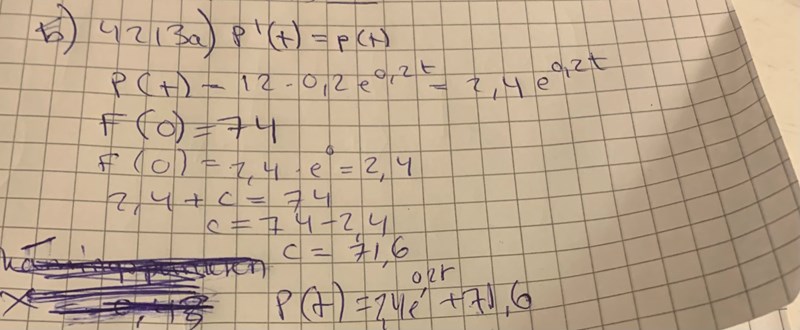 b) 4213a) p'(t) = p(t)
P(t) - 12 · 0,2 e^0,2t = 2,4 e^0,2t
F(0) = 74
F(0) = 2,4 · e^0 = 2,4
2,4 + c = 74
c = 74 - 2,4
c = 71,6
P(t) = 2,4e^0,2t + 71,6